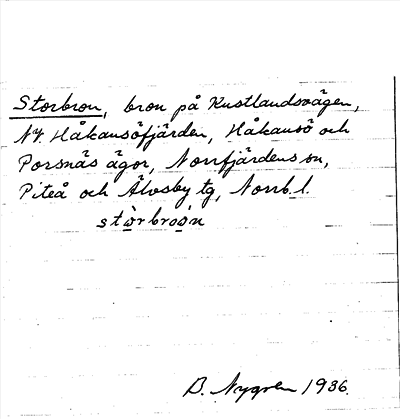 Storbron, bron på Kustlandsvägen,
NV. Håkansöfjärden, Håkansö och
Porsnäs ägor, Norrfjärdens sn,
Piteå och Älvsby tg, Norrb. l.
stòrbroòn
B. Nygren 1936.